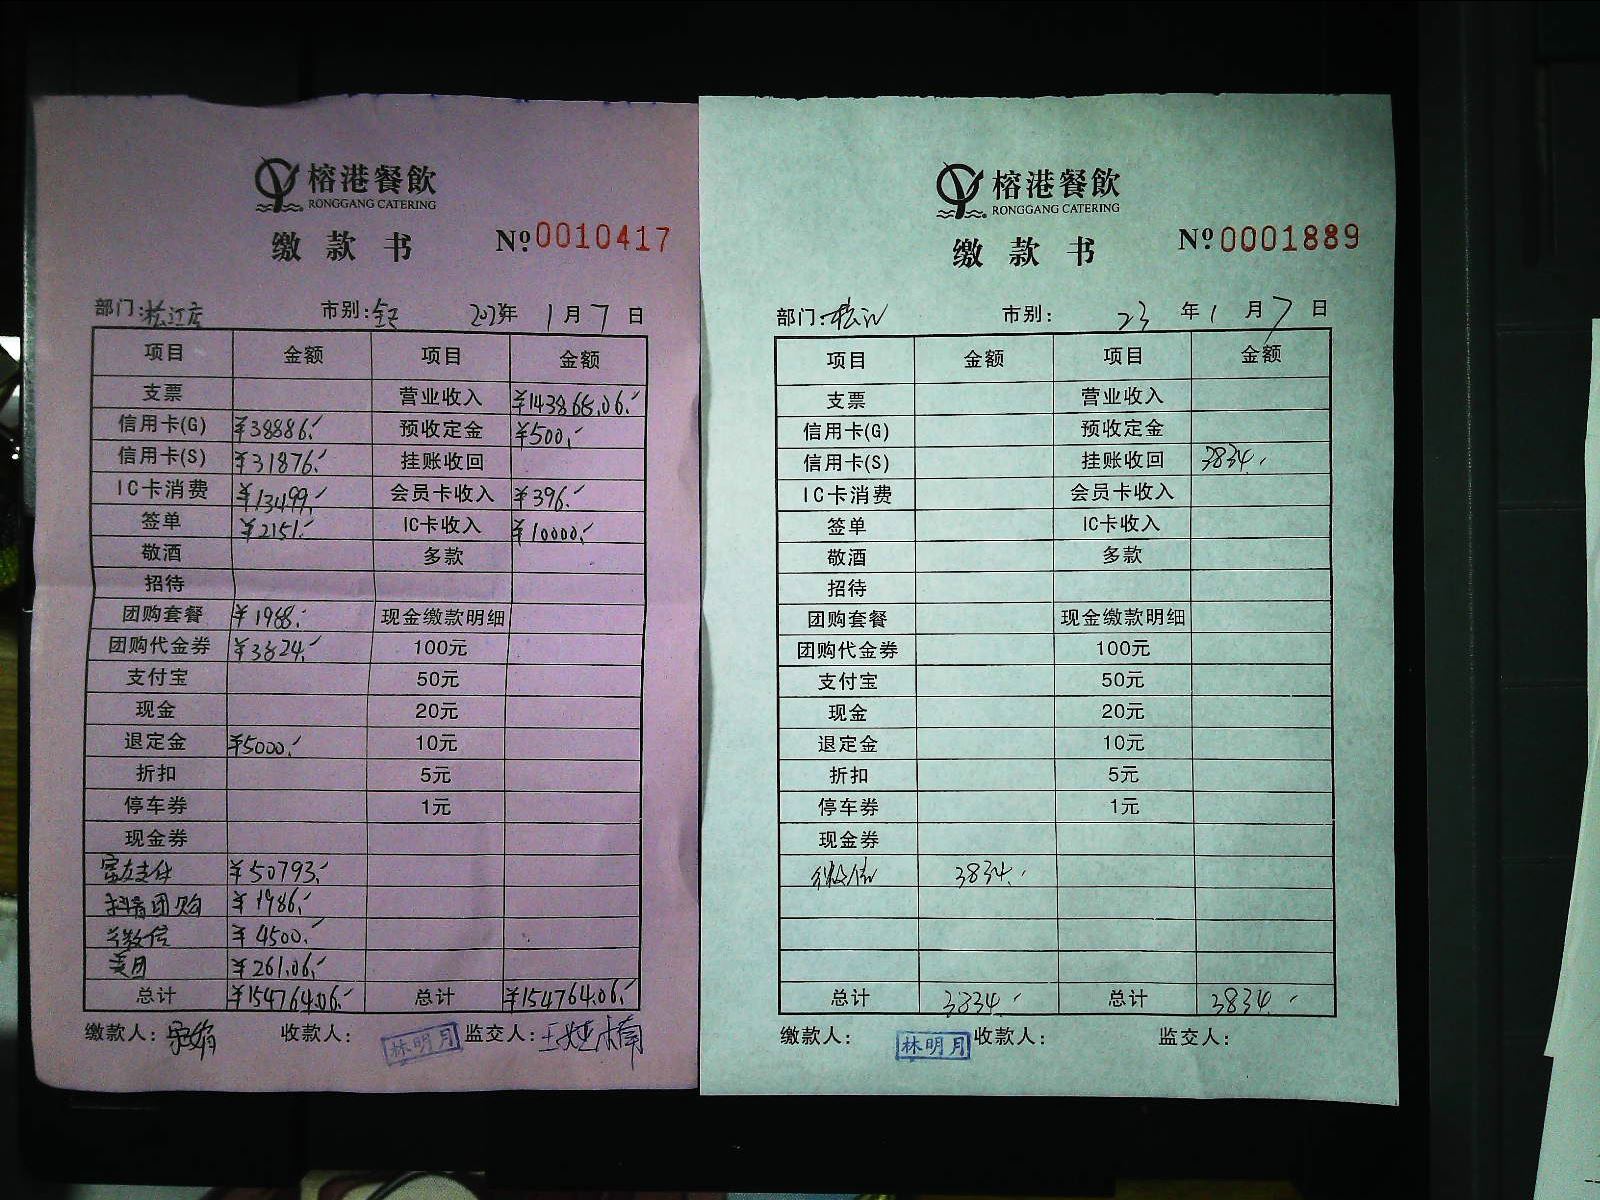 榕港餐飲
RONGGANG CATERING
缴款书 №0010417
部门:松江店 市别:全天 2023年1月7日
项目 金额 项目 金额
支票 营业收入 ¥143868.06.-
信用卡(G) ¥38886.- 预收定金 ¥500.-
信用卡(S) ¥31876.- 挂账收回
IC卡消费 ¥13499.- 会员卡收入 ¥396.-
签单 ¥2151.- IC卡收入 ¥10000.-
敬酒 多款
招待
团购套餐 ¥1988.- 现金缴款明细
团购代金券 ¥3824.- 100元
支付宝 50元
现金 20元
退定金 ¥5000.- 10元
折扣 5元
停车券 1元
现金券
富友支付 ¥50793.-
抖音团购 ¥1986.-
微信 ¥4500.-
美团 ¥261.06.-
总计 ¥154764.06.- 总计 ¥154764.06.-
缴款人: 收款人: 林明月 监交人:
榕港餐飲
RONGGANG CATERING
缴款书 №0001889
部门:松江 市别: 23年1月7日
项目 金额 项目 金额
支票 营业收入
信用卡(G) 预收定金
信用卡(S) 挂账收回 3834.-
IC卡消费 会员卡收入
签单 IC卡收入
敬酒 多款
招待
团购套餐 现金缴款明细
团购代金券 100元
支付宝 50元
现金 20元
退定金 10元
折扣 5元
停车券 1元
现金券
微信 3834.-
总计 3834.- 总计 3834.-
缴款人: 林明月 收款人: 监交人: